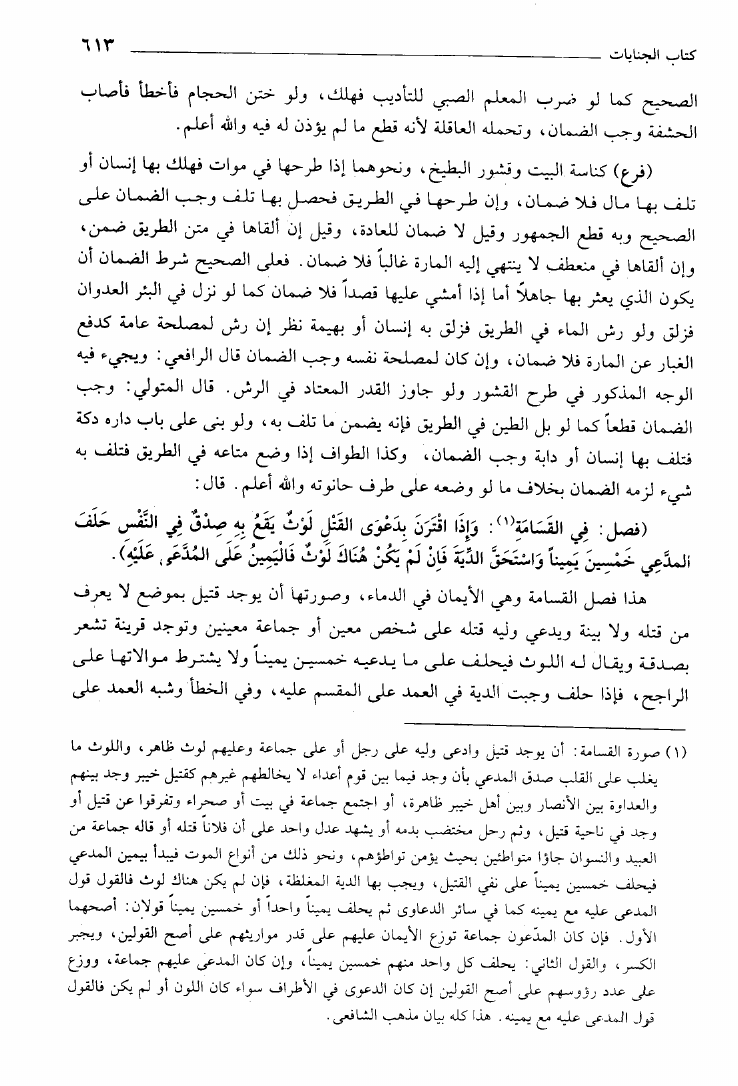 كتاب الجنايات ٦١٣
الصحيح كما لو ضرب المعلم الصبي للتأديب فهلك، ولو ختن الحجام فأخطأ فأصاب
الحشفة وجب الضمان، وتحمله العاقلة لأنه قطع ما لم يؤذن له فيه والله أعلم.
(فرع) كناسة البيت وقشور البطيخ، ونحوهما إذا طرحها في موات فهلك بها إنسان أو
تلف بها مال فلا ضمان، وإن طرحها في الطريق فحصل بها تلف وجب الضمان على
الصحيح وبه قطع الجمهور وقيل لا ضمان للعادة، وقيل إن ألقاها في متن الطريق ضمن،
وإن ألقاها في منعطف لا ينتهي إليه المارة غالباً فلا ضمان. فعلى الصحيح شرط الضمان أن
يكون الذي يعثر بها جاهلاً أما إذا أمشي عليها قصداً فلا ضمان كما لو نزل في البئر العدوان
فزلق ولو رش الماء في الطريق فزلق به إنسان أو بهيمة نظر إن رش لمصلحة عامة كدفع
الغبار عن المارة فلا ضمان، وإن كان لمصلحة نفسه وجب الضمان قال الرافعي: ويجيء فيه
الوجه المذكور في طرح القشور ولو جاوز القدر المعتاد في الرش. قال المتولي: وجب
الضمان قطعاً كما لو بل الطين في الطريق فإنه يضمن ما تلف به، ولو بنى على باب داره دكة
فتلف بها إنسان أو دابة وجب الضمان، وكذا الطواف إذا وضع متاعه في الطريق فتلف به
شيء لزمه الضمان بخلاف ما لو وضعه على طرف حانوته والله أعلم. قال:
(فصل: فِي القَسَامَةِ(١): وَإِذَا اقْتَرَنَ بِدَعْوَى القَتْلِ لَوْثٌ يَقَعُ بِهِ صِدْقٌ فِي النَّفْسِ حَلَفَ
المدَّعِي خَمْسِينَ يَمِيناً وَاسْتَحَقَّ الدِّيَةَ فَإِنْ لَمْ يَكُنْ هُنَاكَ لَوْثٌ فَالْيَمِينُ عَلَى المُدَّعَى عَلَيْهِ).
هذا فصل القسامة وهي الأيمان في الدماء، وصورتها أن يوجد قتيل بموضع لا يعرف
من قتله ولا بينة ويدعي وليه قتله على شخص معين أو جماعة معينين وتوجد قرينة تشعر
بصدقة ويقال له اللوث فيحلف على ما يدعيه خمسين يميناً ولا يشترط موالاتها على
الراجح، فإذا حلف وجبت الدية في العمد على المقسم عليه، وفي الخطأ وشبه العمد على
(١) صورة القسامة: أن يوجد قتيل وادعى وليه على رجل أو على جماعة وعليهم لوث ظاهر، واللوث ما
يغلب على القلب صدق المدعي بأن وجد فيما بين قوم أعداء لا يخالطهم غيرهم كقتيل خيبر وجد بينهم
والعداوة بين الأنصار وبين أهل خيبر ظاهرة، أو اجتمع جماعة في بيت أو صحراء وتفرقوا عن قتيل أو
وجد في ناحية قتيل، وثم رحل مختضب بدمه أو يشهد عدل واحد على أن فلاناً قتله أو قاله جماعة من
العبيد والنسوان جاؤا متواطئين بحيث يؤمن تواطؤهم، ونحو ذلك من أنواع الموت فيبدأ بيمين المدعي
فيحلف خمسين يميناً على نفي القتيل، ويجب بها الدية المغلظة، فإن لم يكن هناك لوث فالقول قول
المدعى عليه مع يمينه كما في سائر الدعاوى ثم يحلف يميناً واحداً أو خمسين يميناً قولان: أصحهما
الأول. فإن كان المدّعون جماعة توزع الأيمان عليهم على قدر مواريثهم على أصح القولين، ويجبر
الكسر، والقول الثاني: يحلف كل واحد منهم خمسين يميناً، وإن كان المدعى عليهم جماعة، ووزع
على عدد رؤوسهم على أصح القولين إن كان الدعوى في الأطراف سواء كان اللون أو لم يكن فالقول
قول المدعى عليه مع يمينه. هذا كله بيان مذهب الشافعى.